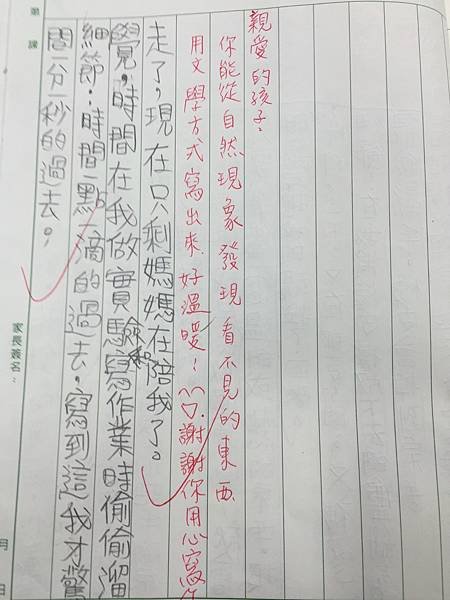 間一分一秒的過去。
細節:時間一點一滴的過去。寫到這我才驚
覺,時間在我做實驗和寫作業時偷偷溜
走了,現在只剩媽媽在陪我了。
親愛的孩子:
你能從自然現象發現看不見的東西
用文學方式寫出來,好溫暖!^^謝謝你用心寫
第 課
家長簽名:
月 日